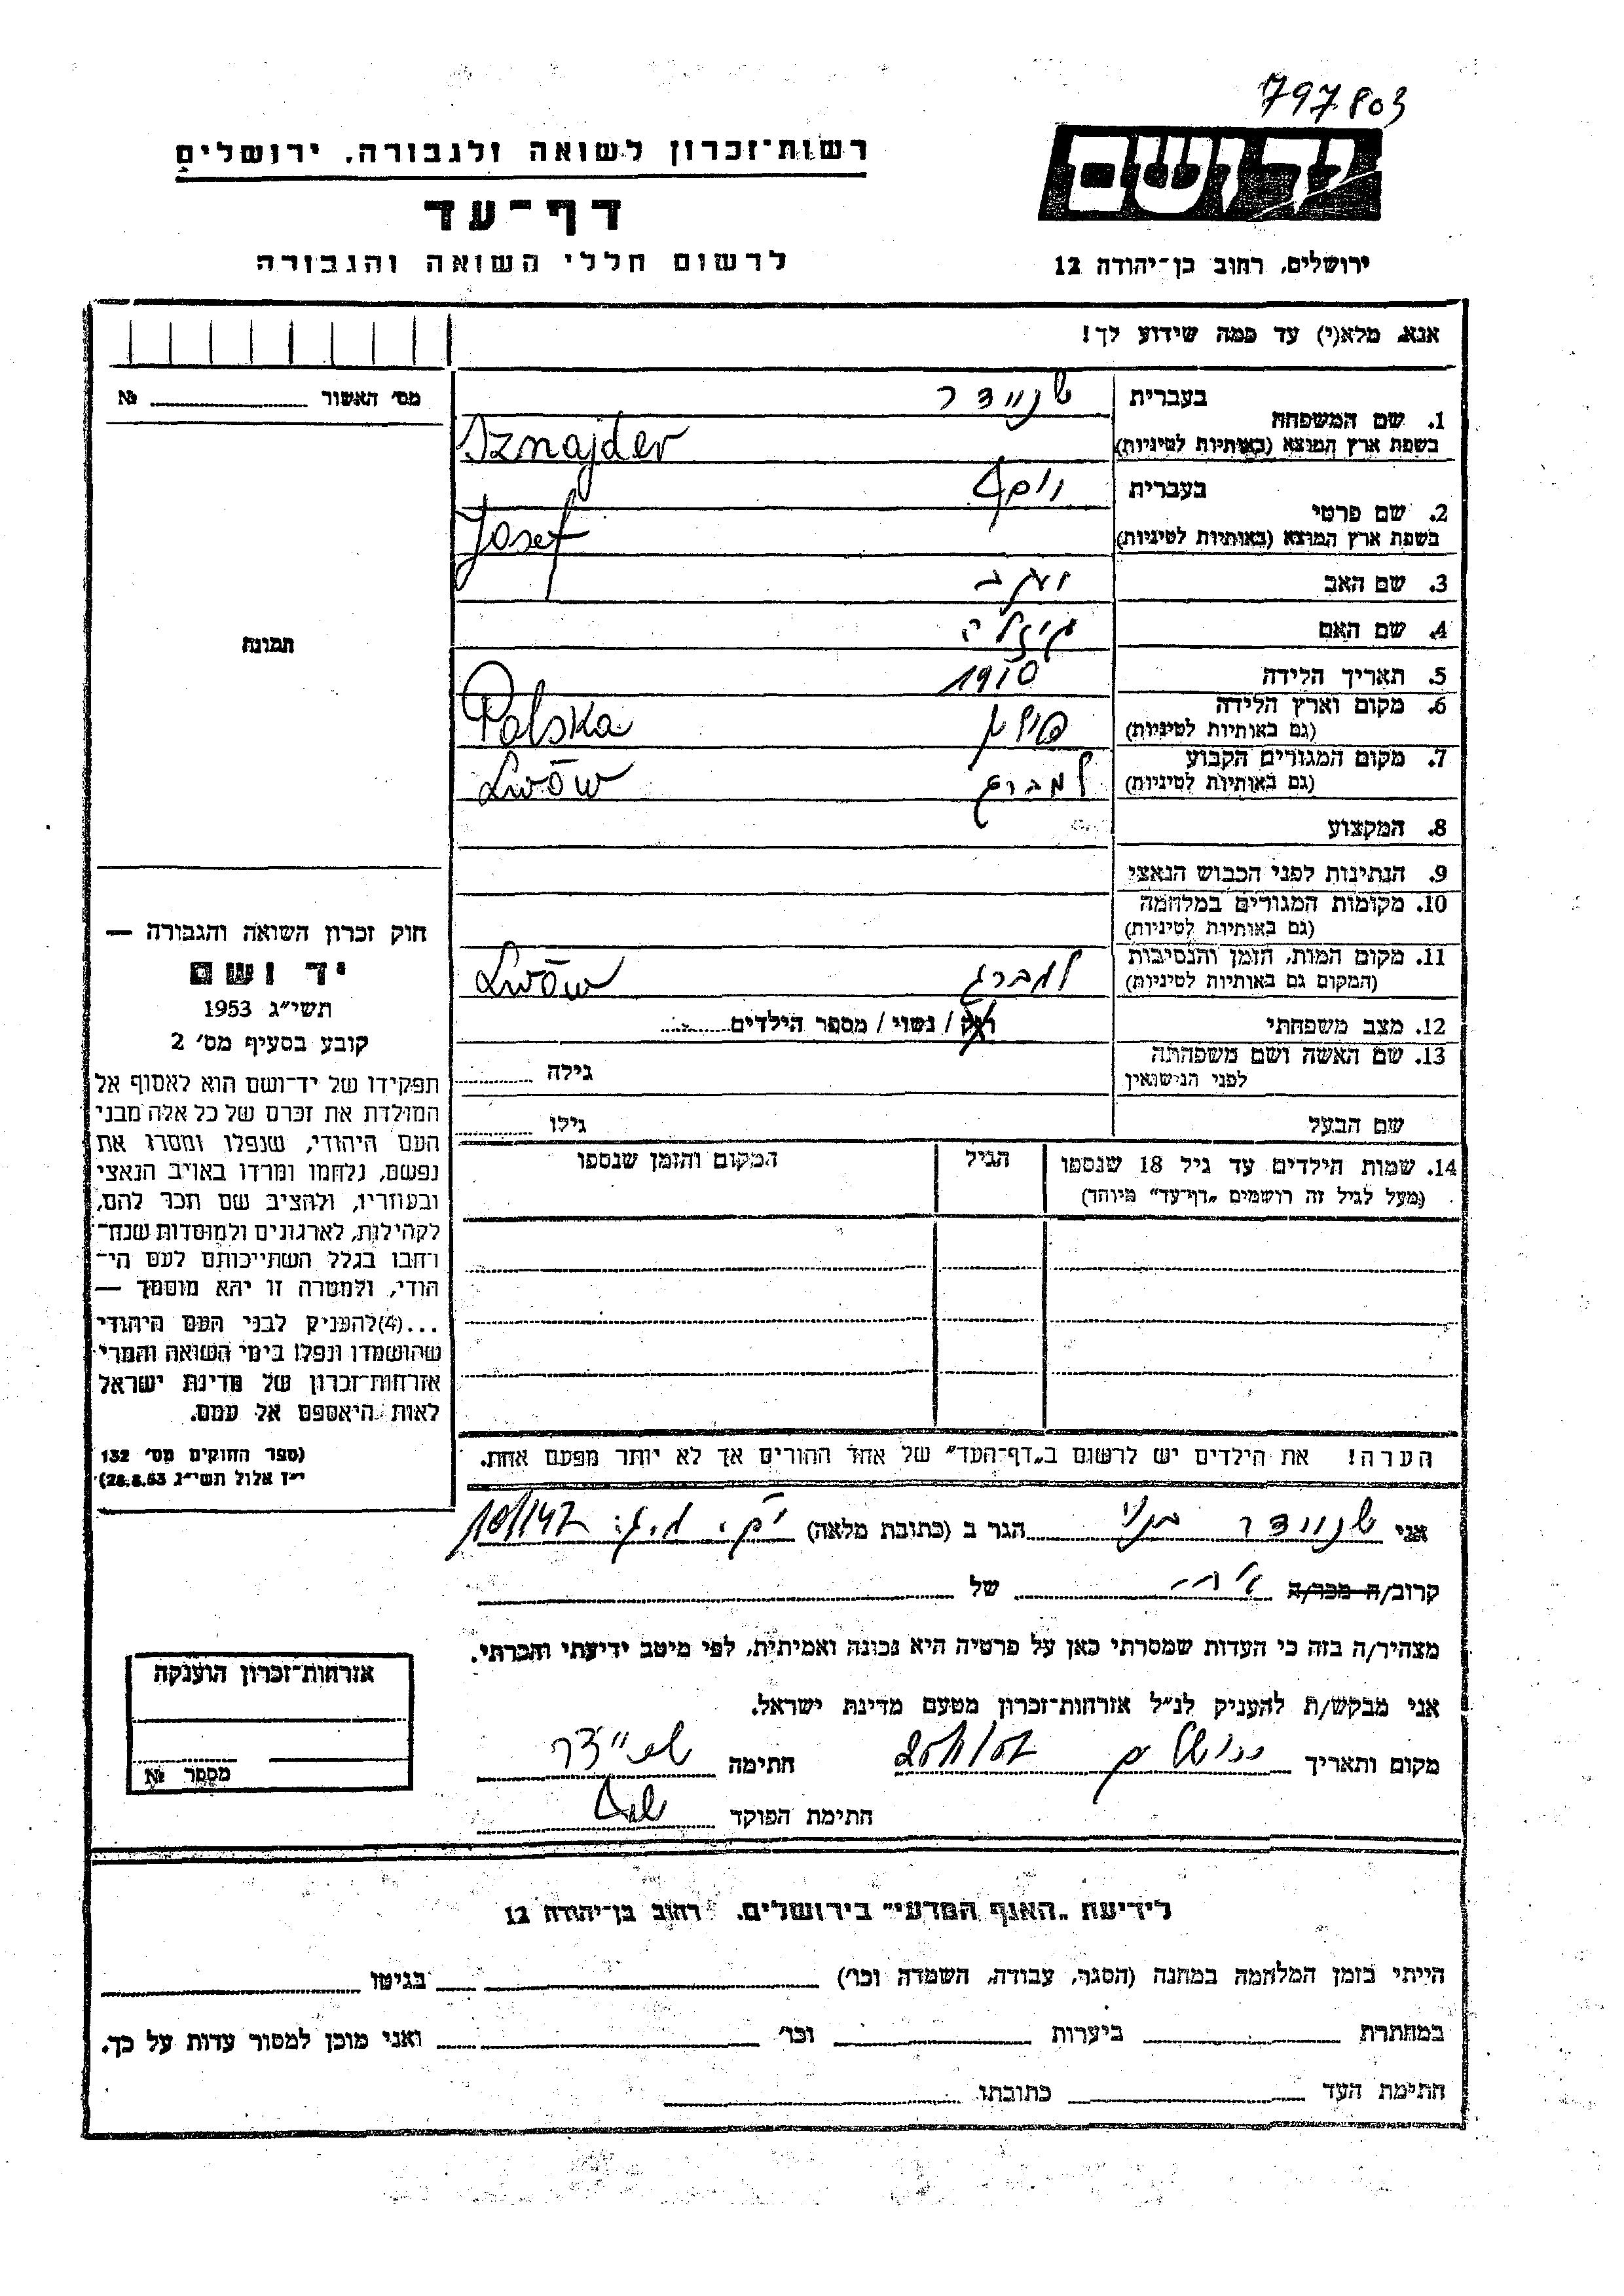 797803
יד ושם
רשות־זכרון לשואה ולגבורה, ירושלים
דף־עד
לרשום חללי השואה והגבורה
ירושלים, רחוב בן־יהודה 12
אנא, מלא(י) עד כמה שידוע לך!
מס׳ האשור № 
בעברית שניידר
1. שם המשפחה
בשפת ארץ המוצא (באותיות לטיניות) Sznajder
בעברית יוסף
2. שם פרטי
בשפת ארץ המוצא (באותיות לטיניות) Josef
3. שם האב יעקב
4. שם האם גיזלה
5. תאריך הלידה 1910
6. מקום וארץ הלידה פולין Polska
(גם באותיות לטיניות)
7. מקום המגורים הקבוע למברג Lwów
(גם באותיות לטיניות)
8. המקצוע
9. הנתינות לפני הכבוש הנאצי
10. מקומות המגורים במלחמה
(גם באותיות לטיניות)
11. מקום המות, הזמן והנסיבות למברג Lwów
(המקום גם באותיות לטיניות)
12. מצב משפחתי רוק / נשוי / מספר הילדים
13. שם האשה ושם משפחתה
לפני הנישואין גילה
שם הבעל גילו
14. שמות הילדים עד גיל 18 שנספו הגיל המקום והזמן שנספו
(מעל לגיל זה רושמים „דף־עד״ מיוחד)
תמונה
חוק זכרון השואה והגבורה —
יד ושם
תשי״ג 1953
קובע בסעיף מס׳ 2
תפקידו של יד־ושם הוא לאסוף אל
המולדת את זכרם של כל אלה מבני
העם היהודי, שנפלו ומסרו את
נפשם, נלחמו ומרדו באויב הנאצי
ובעוזריו, ולהציב שם וזכר להם,
לקהילות, לארגונים ולמוסדות שנח־
רחבו בגלל השתייכותם לעם הי־
הודי, ולמטרה זו יהא מוסמך —
...(4)להעניק לבני העם היהודי
שהושמדו ונפלו בימי השואה והמרי
אזרחות־זכרון של מדינת ישראל
לאות היאספם אל עמם.
(ספר החוקים מס׳ 132
י״ז אלול תשי״ג 28.8.53)
הערה! את הילדים יש לרשום ב„דף־העד״ של אחד ההורים אך לא יותר מפעם אחת.
אני שניידר הגר ב (כתובת מלאה)
קרוב/ה מכר/ה של
מצהיר/ה בזה כי העדות שמסרתי כאן על פרטיה היא נכונה ואמיתית, לפי מיטב ידיעתי והכרתי.
אני מבקש/ת להעניק לנ״ל אזרחות־זכרון מטעם מדינת ישראל.
מקום ותאריך ירושלים חתימה שניידר
חתימת הפוקד
אזרחות־זכרון הוענקה
מספר №
לידיעת „האגף המדעי״ בירושלים, רחוב בן־יהודה 12
הייתי בזמן המלחמה במחנה (הסגר, עבודה, השמדה וכו׳) בגיטו
במחתרת ביערות וכו׳ ואני מוכן למסור עדות על כך.
חתימת העד כתובתו